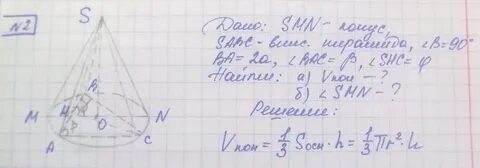 №2
S
Дано: SMN - конус,
SABC - впис. пирамида, ∠B = 90°
BA = 2a, ∠BAC = β, ∠SHC = φ
Найти: а) Vкон - ?
б) ∠SMN - ?
Решение:
Vкон = 1/3 Sосн · h = 1/3 Πr² · h
B
M H N
β O
A C